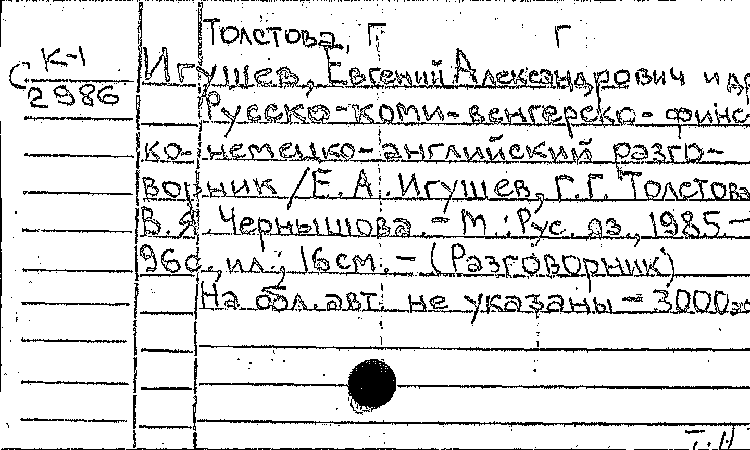 Толстова, Г Г
К-1
2986
Игушев, Евгений Александрович и др
Русско-коми-венгерско-финс
ко-немецко-английский разго-
ворник /Е.А.Игушев, Г.Г. Толстова
В.Я. Чернышова. - М.: Рус. яз., 1985.-
96с., ил.; 16см. - (Разговорник)
На обл. авт. не указаны - 3000